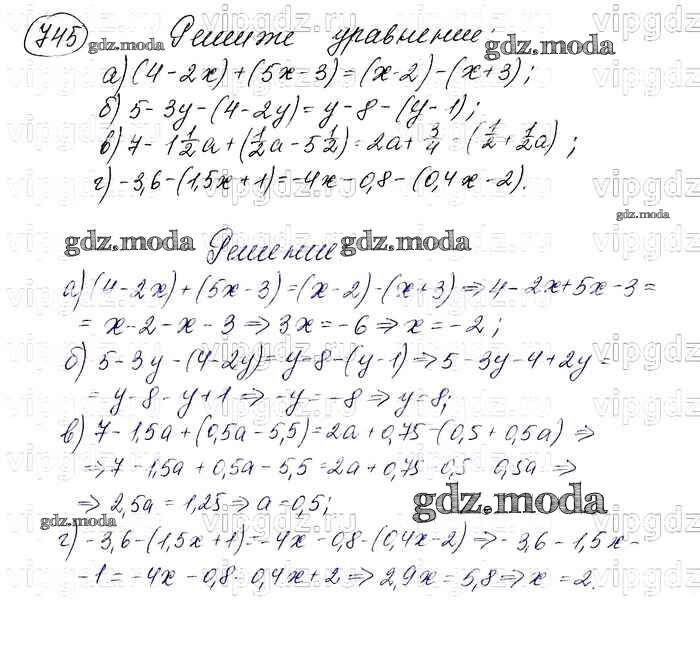 745 gdz.moda Решите уравнение: gdz.moda
а) (4 - 2x) + (5x - 3) = (x - 2) - (x + 3);
б) 5 - 3y - (4 - 2y) = y - 8 - (y - 1);
в) 7 - 1 1/2 a + (1/2 a - 5 1/2) = 2a + 3/4 - (1/2 + 1/2 a);
г) -3,6 - (1,5x + 1) = -4x - 0,8 - (0,4x - 2).
gdz.moda
gdz.moda Решение gdz.moda
а) (4 - 2x) + (5x - 3) = (x - 2) - (x + 3) ⇒ 4 - 2x + 5x - 3 =
= x - 2 - x - 3 ⇒ 3x = -6 ⇒ x = -2;
б) 5 - 3y - (4 - 2y) = y - 8 - (y - 1) ⇒ 5 - 3y - 4 + 2y =
= y - 8 - y + 1 ⇒ -y = -8 ⇒ y = 8;
в) 7 - 1,5a + (0,5a - 5,5) = 2a + 0,75 - (0,5 + 0,5a) ⇒
⇒ 7 - 1,5a + 0,5a - 5,5 = 2a + 0,75 - 0,5 - 0,5a ⇒
⇒ 2,5a = 1,25 ⇒ a = 0,5;
gdz.moda
gdz.moda
г) -3,6 - (1,5x + 1) = -4x - 0,8 - (0,4x - 2) ⇒ -3,6 - 1,5x -
- 1 = -4x - 0,8 - 0,4x + 2 ⇒ 2,9x = 5,8 ⇒ x = 2.